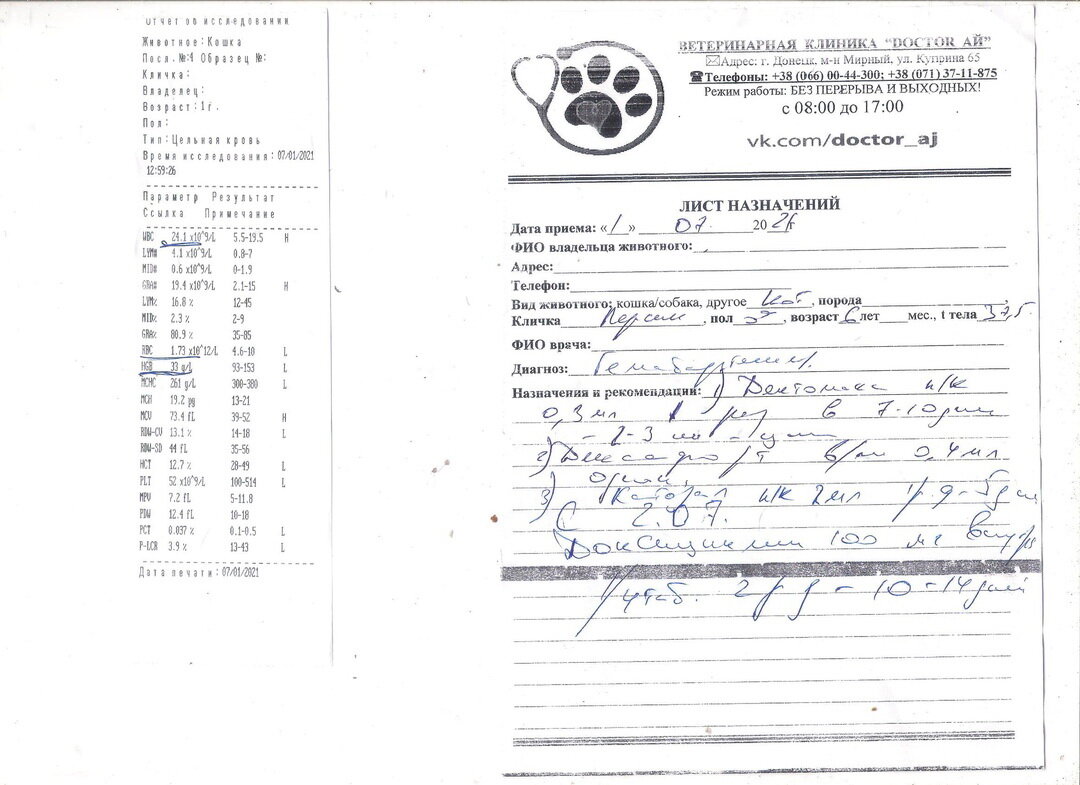 Отчет об исследовании
Животное:Кошка
Посл.№:4 Образец №:
Кличка:
Владелец:
Возраст:1г.
Пол:
Тип:Цельная кровь
Время исследования:07/01/2021
12:59:26
Параметр Результат
Ссылка Примечание
WBC 24.1 x10^9/L 5.5-19.5 H
LYM# 4.1 x10^9/L 0.8-7
MID# 0.6 x10^9/L 0-1.9
GRA# 19.4 x10^9/L 2.1-15 H
LYM% 16.8 % 12-45
MID% 2.3 % 2-9
GRA% 80.9 % 35-85
RBC 1.73 x10^12/L 4.6-10 L
HGB 33 g/L 93-153 L
MCHC 261 g/L 300-380 L
MCH 19.2 pg 13-21
MCV 73.4 fL 39-52 H
RDW-CV 13.1 % 14-18 L
RDW-SD 44 fL 35-56
HCT 12.7 % 28-49 L
PLT 52 x10^9/L 100-514 L
MPV 7.2 fL 5-11.8
PDW 12.4 fL 10-18
PCT 0.037 % 0.1-0.5 L
P-LCR 3.9 % 13-43 L
Дата печати:07/01/2021
ВЕТЕРИНАРНАЯ КЛИНИКА "DOCTOR АЙ"
Адрес: г. Донецк, м-н Мирный, ул. Куприна 65
Телефоны: +38 (066) 00-44-300; +38 (071) 37-11-875
Режим работы: БЕЗ ПЕРЕРЫВА И ВЫХОДНЫХ!
с 08:00 до 17:00
vk.com/doctor_aj
ЛИСТ НАЗНАЧЕНИЙ
Дата приема: «1» 07. 2021г
ФИО владельца животного:
Адрес:
Телефон:
Вид животного: кошка/собака, другое Кот, порода
Кличка Персик, пол ♂, возраст 6 лет мес., t тела 37,5
ФИО врача:
Диагноз:
Назначения и рекомендации: 1) п/к
0,3 мл 1 раз в 7-10 дней
- 2-3
2) в/м 0,4 мл
3) Катозал п/к 2мл 1 р д - 5 дн
С 2.07.
Доксициклин 100 мг внутрь
1/4 таб. 2 р д - 10-14 дней